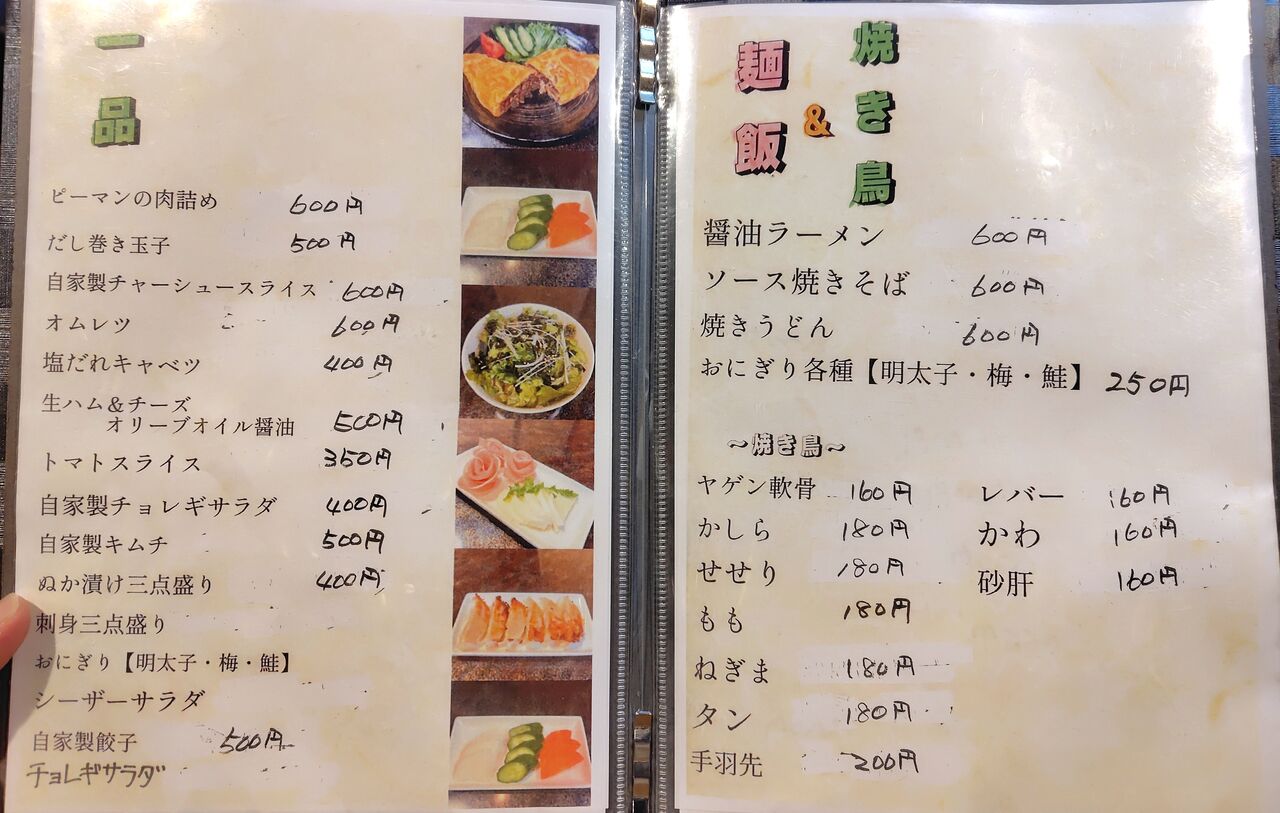 一品
ピーマンの肉詰め 600円
だし巻き玉子 500円
自家製チャーシュースライス 600円
オムレツ 600円
塩だれキャベツ 400円
生ハム&チーズ
オリーブオイル醤油 500円
トマトスライス 350円
自家製チョレギサラダ 400円
自家製キムチ 500円
ぬか漬け三点盛り 400円
刺身三点盛り
おにぎり【明太子・梅・鮭】
シーザーサラダ
自家製餃子 500円
チョレギサラダ
焼き鳥
&
麺飯
醤油ラーメン 600円
ソース焼きそば 600円
焼きうどん 600円
おにぎり各種【明太子・梅・鮭】 250円
～焼き鳥～
ヤゲン軟骨 160円
かしら 180円
せせり 180円
もも 180円
ねぎま 180円
タン 180円
手羽先 200円
レバー 160円
かわ 160円
砂肝 160円